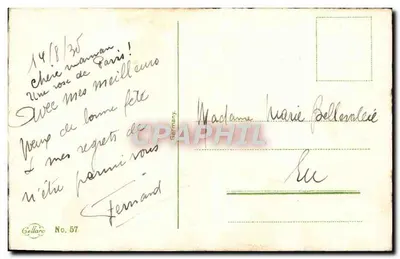 14/8/35
chère maman
Une rose de Paris !
Avec mes meilleurs
vœux de bonne fête
& mes regrets de
n'être parmi vous
Fernand
Germany.
Madame Marie Bellevallée
Eu
CPAPHIL.com
Gellaro No. 57